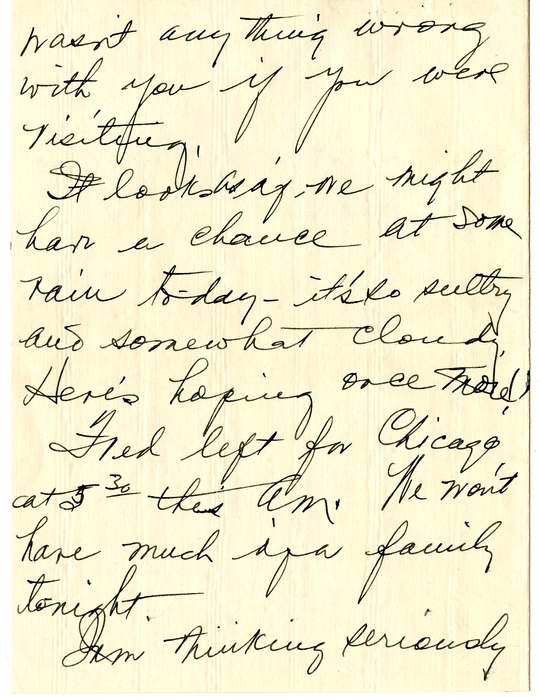 wasn't anything wrong
with you if you were
visiting.
It looks as if we might
have a chance at some
rain to-day - it's so sultry
and somewhat cloudy.
Here's hoping once more!
Fred left for Chicago
at 5 30 this A.M. We won't
have much of a family
tonight
I'm thinking seriously